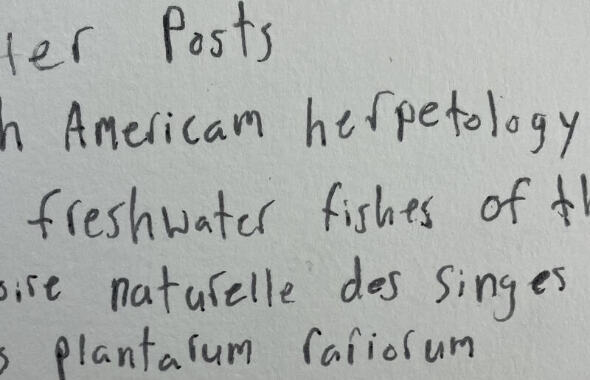 ter Posts
h Americam herpetology
freshwater fishes of th
oire naturelle des singes
s plantarum rariorum